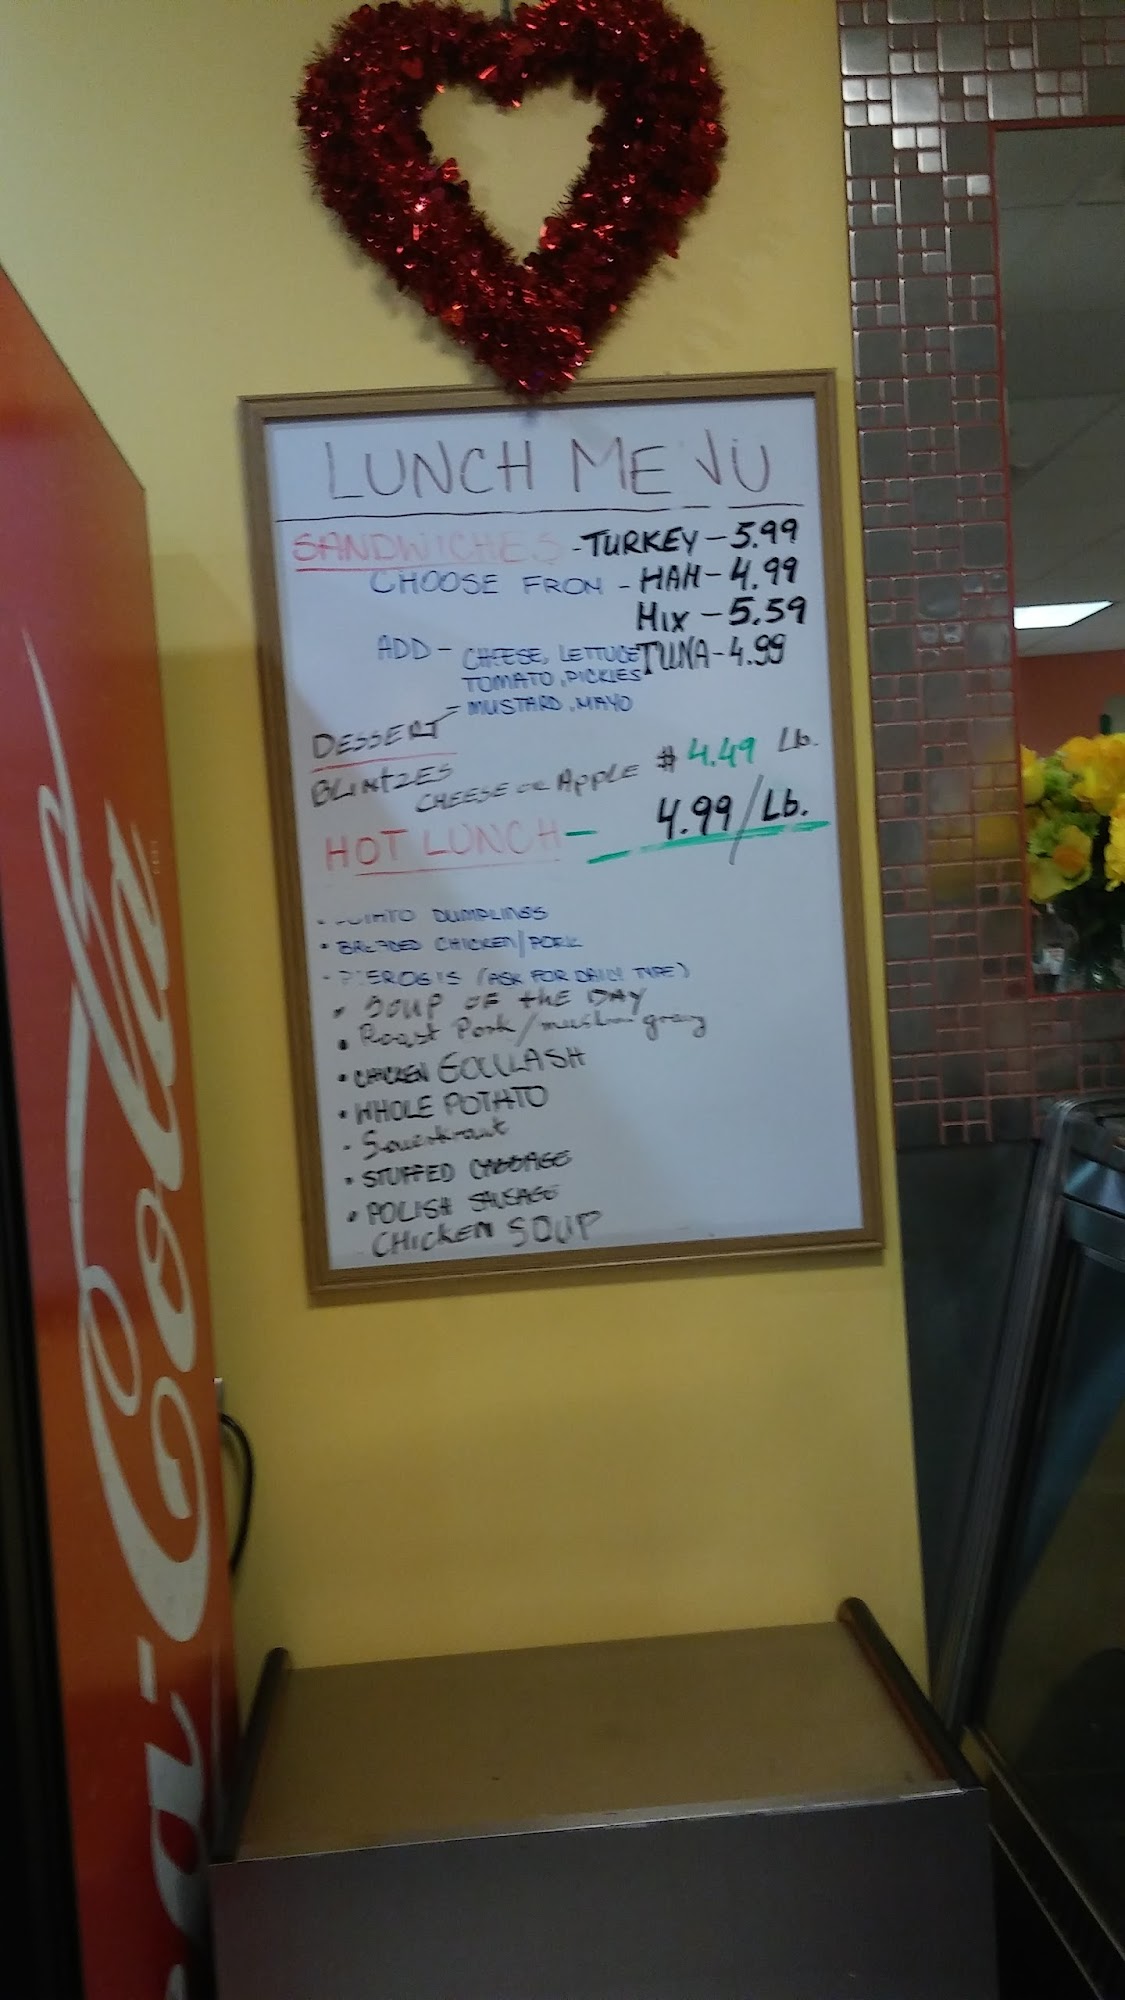 LUNCH MENU
SANDWICHES - TURKEY - 5.99
CHOOSE FROM - HAM - 4.99
MIX - 5.59
ADD - CHEESE, LETTUCE TUNA - 4.99
TOMATO, PICKLES
= MUSTARD, MAYO
DESSERT
BLINTZES CHEESE OR APPLE $ 4.49 Lb.
HOT LUNCH - 4.99/Lb.
• POTATO DUMPLINGS
• BREADED CHICKEN/PORK
• PIEROGIS (ASK FOR DAILY TYPE)
• SOUP OF the DAY
• Roast Pork/mushroom gravy
• CHICKEN GOULLASH
• WHOLE POTATO
• Sauerkraut
• STUFFED CABBAGE
• POLISH SAUSAGE
CHICKEN SOUP
Coca-Cola